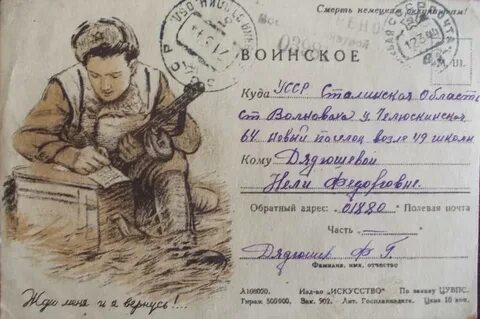 Смерть немецким оккупантам!
ВОИНСКОЕ
Куда УССР Сталинская Область
ст Волноваха у. Челюскинская
64 новый поселок возле 49 школы
Кому Дядюшевой
Нели Федоровне.
Обратный адрес: 01880 Полевая почта
Часть
Дядюшев Ф Г.
Фамилия, имя, отчество
Жди меня и я вернусь!...
А108020. Изд-во „ИСКУССТВО“ По заказу ЦУВПС.
Тираж 500000. Зак. 902. Цена 10 коп.